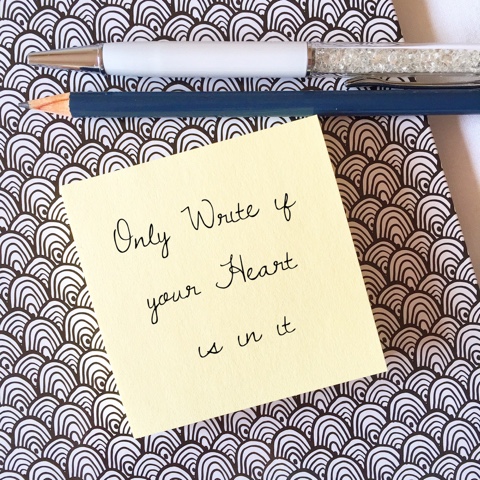 Only Write if
your Heart
is in it